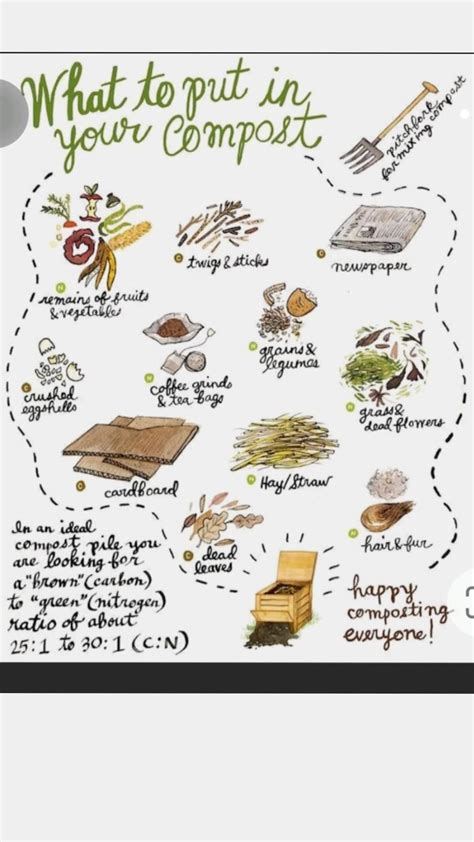 What to put in
your Compost
pitchfork
for mixing compost
remains of fruits
& vegetables
N
C
twigs & sticks
C
newspaper
C
crushed
eggshells
N
coffee grinds
& tea bags
N
grains &
legumes
N
grass &
dead flowers
C
cardboard
N
Hay/Straw
C
dead
leaves
N
hair & fur
In an ideal
compost pile you
are looking for
a "brown" (carbon)
to "green" (nitrogen)
ratio of about
25:1 to 30:1 (C:N)
happy
composting
everyone!